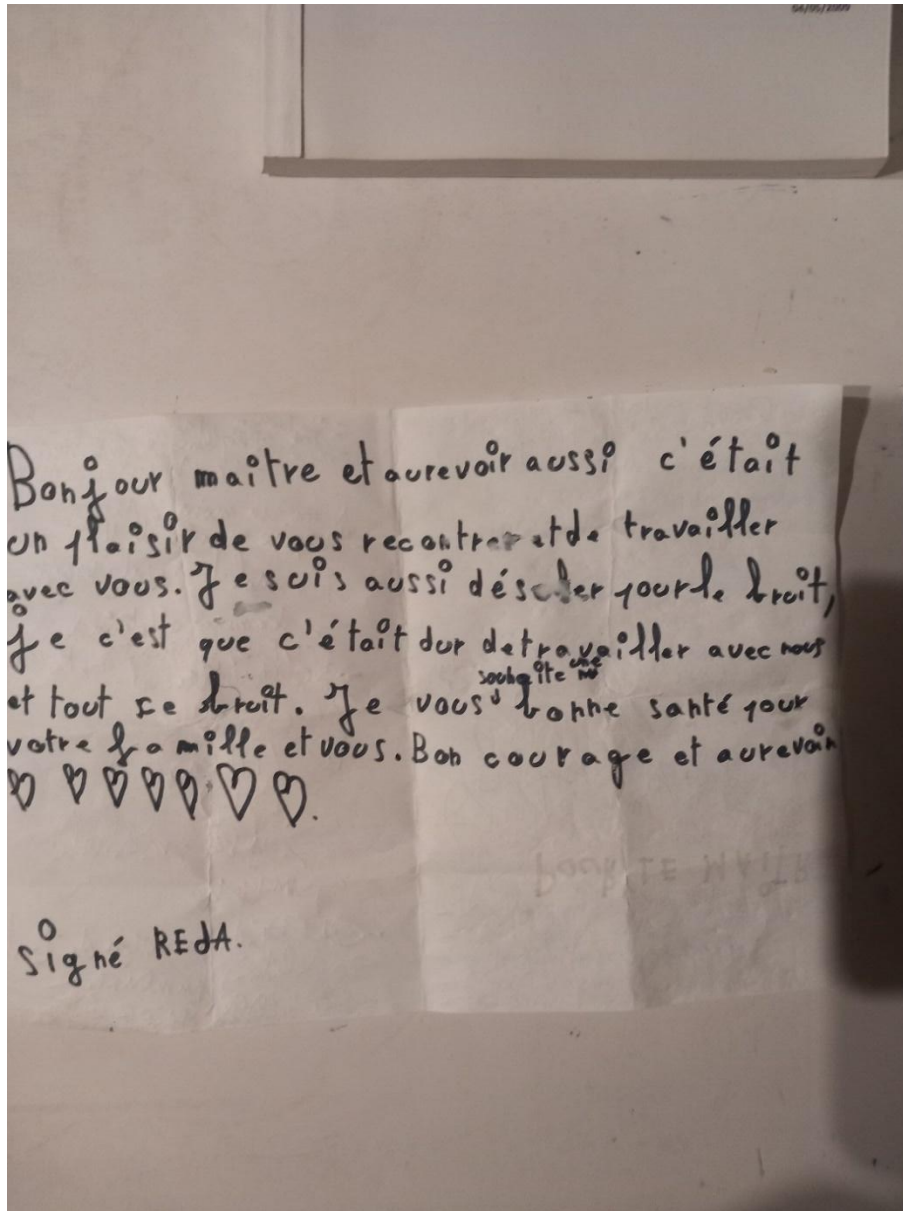 04/05/2009
Bonjour maître et aurevoir aussi c'était
un plaisir de vous recontrer et de travailler
avec vous. Je suis aussi désoler pour le bruit,
je c'est que c'était dur de travailler avec nous
souhaite une
et tout ce bruit. Je vous bonne santé pour
votre famille et vous. Bon courage et aurevoir
signé REdA.
POUR LE MAÎTRE